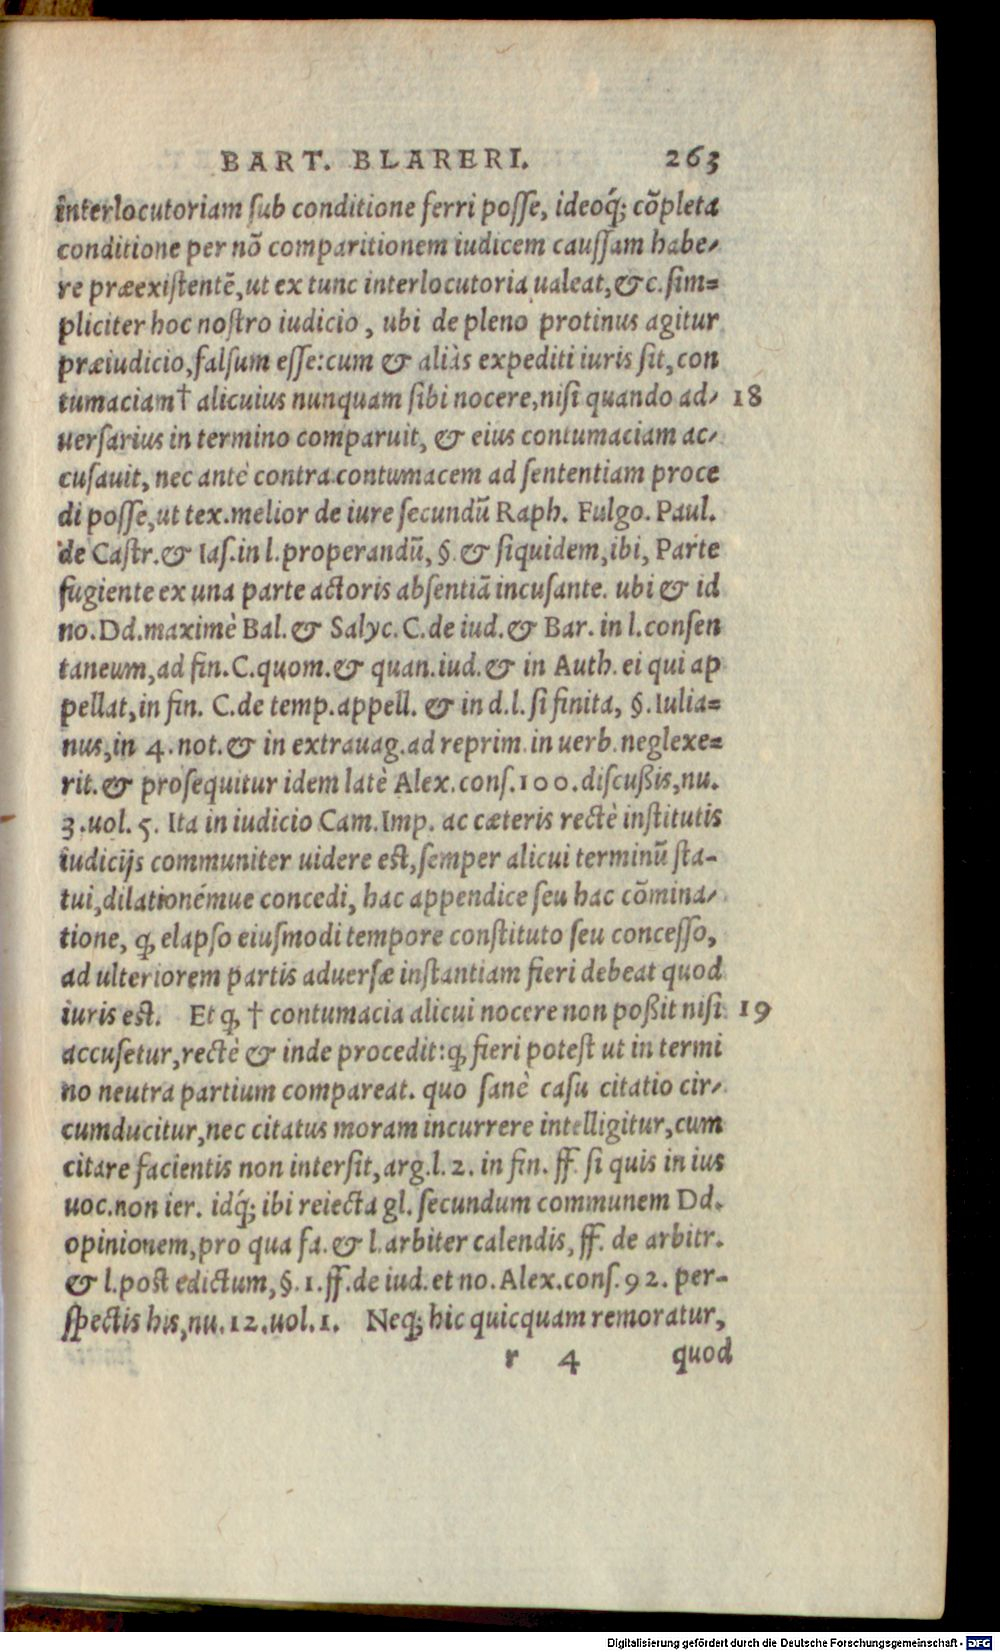 BART. BLARERI. 263
interlocutoriam sub conditione ferri posse, ideoq́; cõpleta
conditione per nõ comparitionem iudicem caussam habe-
re præexistentẽ, ut ex tunc interlocutoria ualeat, &c. sim=
pliciter hoc nostro iudicio, ubi de pleno protinus agitur
præiudicio, falsum esse: cum & aliàs expediti iuris sit, con
tumaciam† alicuius nunquam sibi nocere, nisi quando ad- 18
uersarius in termino comparuit, & eius contumaciam ac-
cusauit, nec antè contra contumacem ad sententiam proce
di posse, ut tex. melior de iure secundũ Raph. Fulgo. Paul.
de Castr. & Ias. in l. properandũ, §. & siquidem, ibi, Parte
fugiente ex una parte actoris absentiã incusante. ubi & id
no. Dd. maximè Bal. & Salyc. C. de iud. & Bar. in l. consen
taneum, ad fin. C. quom. & quan. iud. & in Auth. ei qui ap
pellat, in fin. C. de temp. appell. & in d. l. si finita, §. Iulia=
nus, in 4. not. & in extrauag. ad reprim. in uerb. neglexe=
rit. & prosequitur idem latè Alex. cons. 100. discußis, nu.
3. uol. 5. Ita in iudicio Cam. Imp. ac cæteris rectè institutis
iudicijs communiter uidere est, semper alicui terminũ sta-
tui, dilationémue concedi, hac appendice seu hac cõmina-
tione, ꝙ elapso eiusmodi tempore constituto seu concesso,
ad ulteriorem partis aduersæ instantiam fieri debeat quod
iuris est. Et ꝙ † contumacia alicui nocere non poßit nisi 19
accusetur, rectè & inde procedit: ꝙ fieri potest ut in termi
no neutra partium compareat. quo sanè casu citatio cir-
cumducitur, nec citatus moram incurrere intelligitur, cum
citare facientis non intersit, arg. l. 2. in fin. ff. si quis in ius
uoc. non ier. idq́; ibi reiecta gl. secundum communem Dd.
opinionem, pro qua fa. & l. arbiter calendis, ff. de arbitr.
& l. post edictum, §. 1. ff. de iud. et no. Alex. cons. 92. per-
spectis his, nu. 12. uol. 1. Neq; hic quicquam remoratur,
r 4 quod
Digitalisierung gefördert durch die Deutsche Forschungsgemeinschaft - DFG